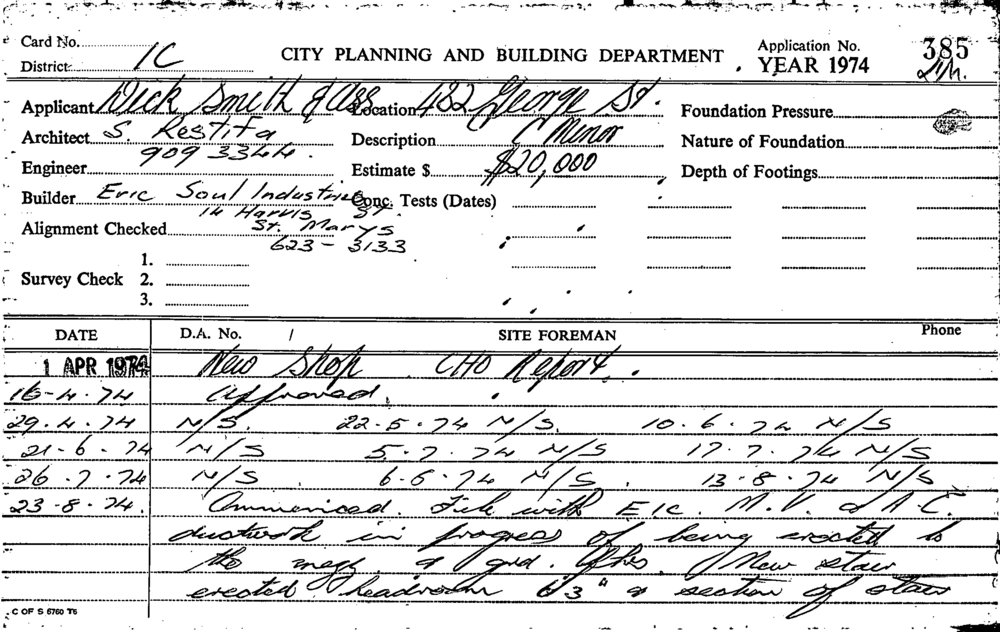 Card No.
District 1C
CITY PLANNING AND BUILDING DEPARTMENT
Application No. 385
YEAR 1974
Applicant Dick Smith & Ass
Location 482 George St.
Foundation Pressure
Architect S. Restifa
909 3344.
Description C Minor
Nature of Foundation
Engineer
Estimate $ $20,000
Depth of Footings
Builder Eric Soul Industries
14 Harris St.
St. Marys
623-3133
Conc. Tests (Dates)
Alignment Checked
Survey Check
1.
2.
3.
DATE D.A. No. / SITE FOREMAN Phone
1 APR 1974 New Shop CHO Report.
16-4.74 Approved.
29.4.74 N/S. 22-5.74 N/S. 10.6.74 N/S
21-6.74 N/S 5-7.74 N/S 17.7.74 N/S
26.7.74 N/S. 6-8.74 N/S. 13-8.74 N/S
23-8.74. Commenced. with M.V. & A-C.
ductwork in progress of being erected to
the & grd. New stair
erected headroom 6'3" a section of stair
C OF S 6760 T6